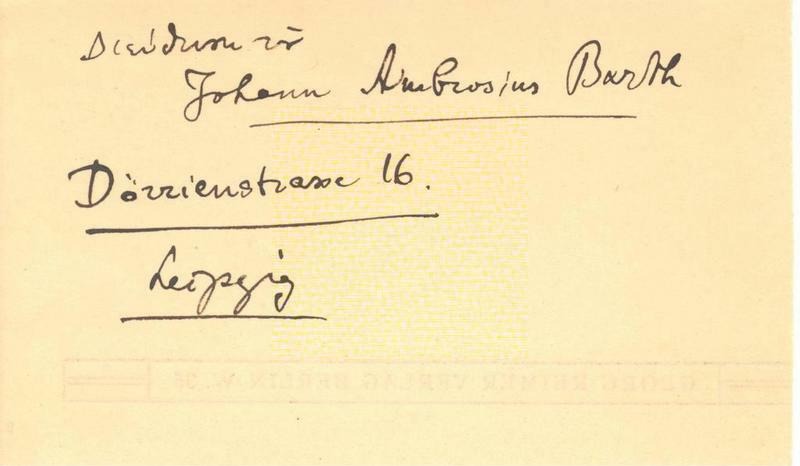 Johann Ambrosius Barth
Dörrienstrasse 16.
Leipzig
GEORG REIMER VERLAG BERLIN W. 35